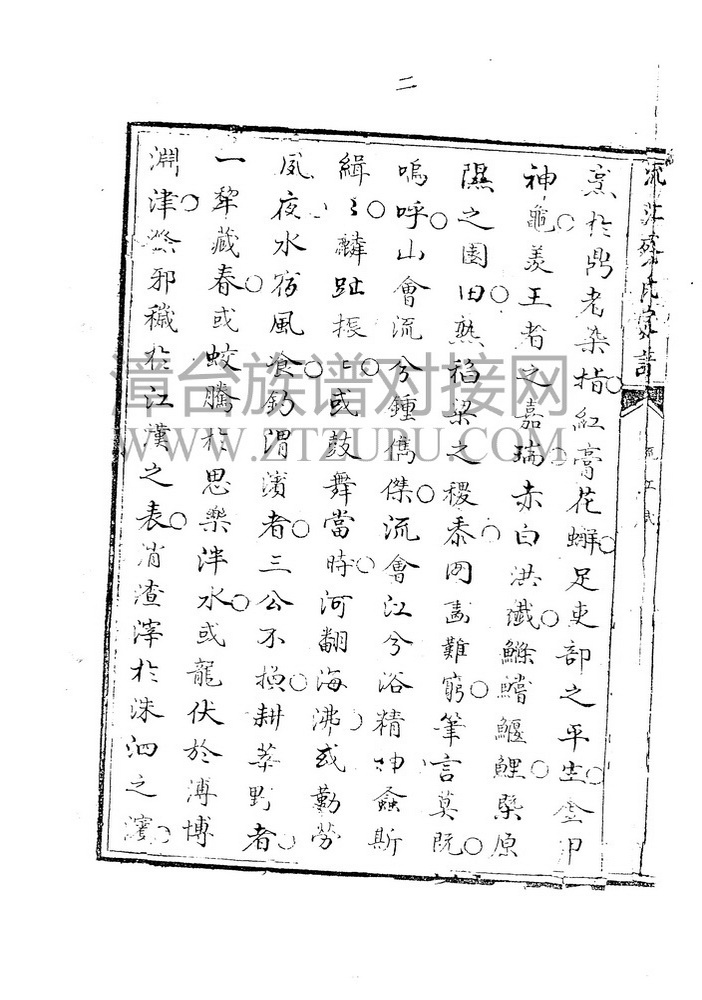 二
流江蔡氏家譜
流江
烹於鼎老染指紅膏花蠏足吏部之平生金甲
神龜羡王者之嘉瑞赤白洪纖鰷鱨鰋鯉槩原
隰之園田熟稻梁之稷黍罔畵難窮筆言莫既
嗚呼山會流兮鍾儁傑流會江兮浴精神螽斯
緝〻麟趾振〻或鼓舞當時河翻海沸或勤劳
夙夜水宿風飡釣渭濱者三公不換耕莘野者
一犂藏春或蛟騰於思樂泮水或龍伏於溥博
淵津祭邪穢於江漢之表消渣滓於洙泗之濱
漳台族谱对接网
WWW.ZTZUPU.COM